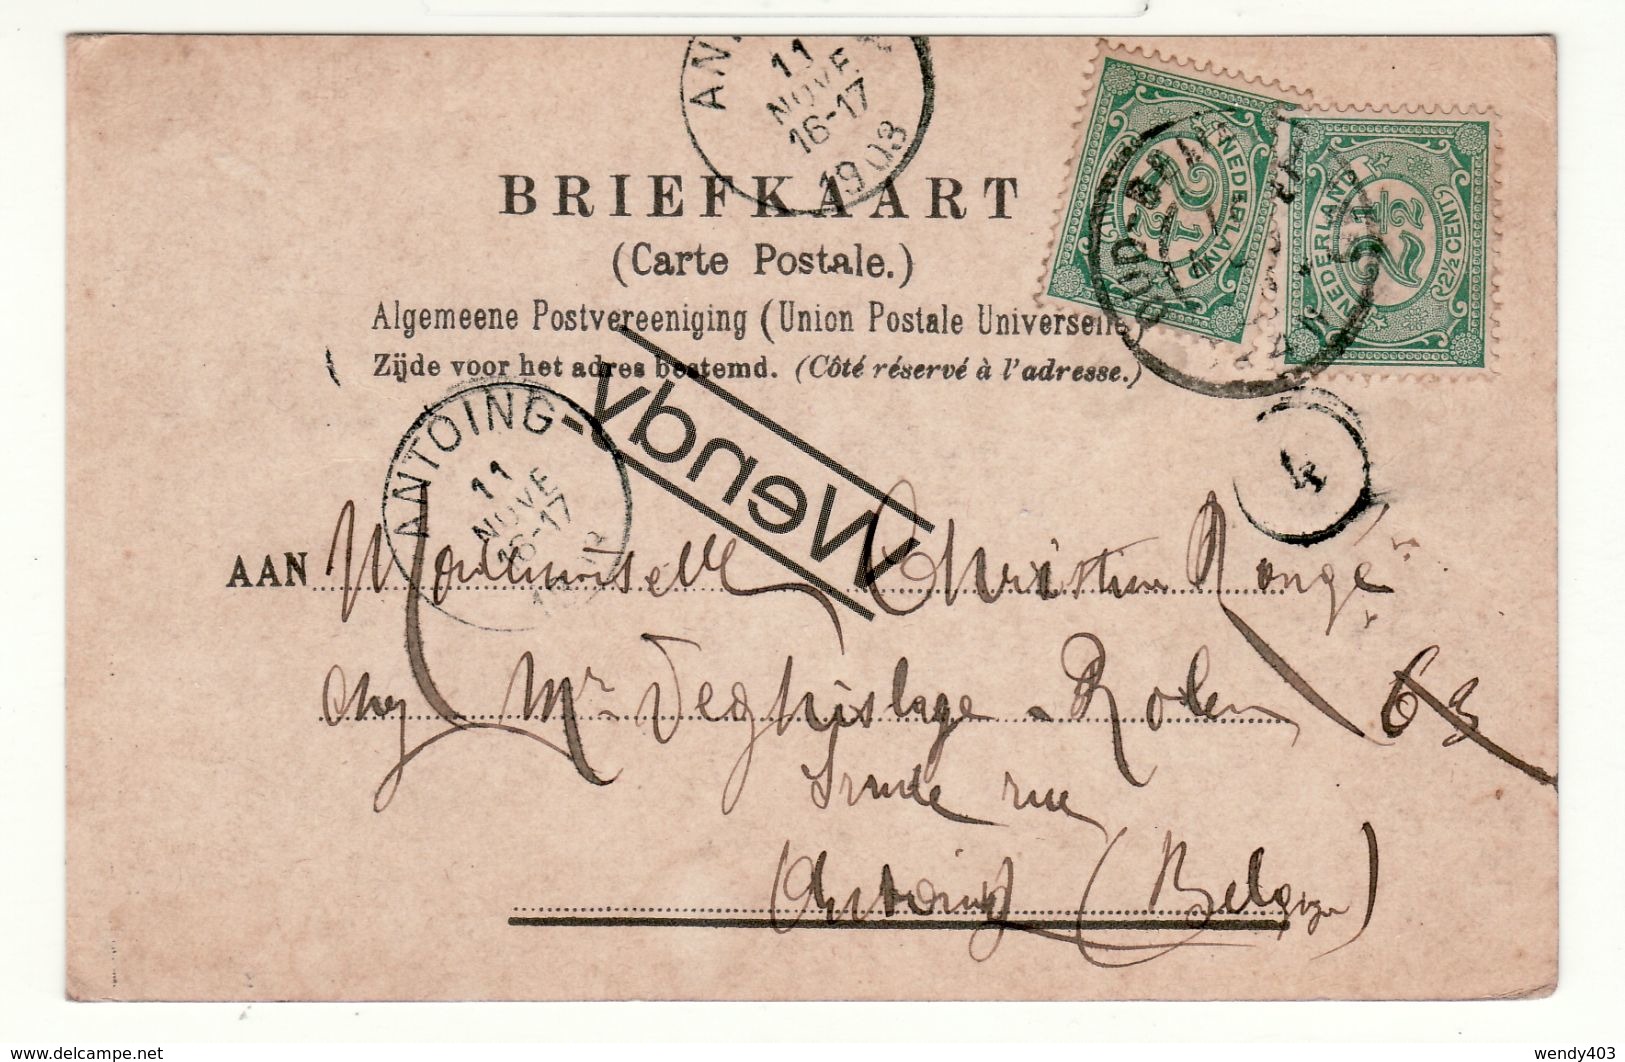 11
NOVE
16-17
1903
BRIEFKAART
(Carte Postale.)
Algemeene Postvereeniging (Union Postale Universelle)
Zijde voor het adres bestemd. (Côté réservé à l'adresse.)
NEDERLAND
2½
NEDERLAND
2½
2½ CENT
OUD-
4
ANTOING
11
NOVE
16-17
Wendy
AAN Mademoiselle Christine Rongé
chez Mr Deghislage - Rolin
63
rue
Antoing (Belgique)
delcampe.net
wendy403